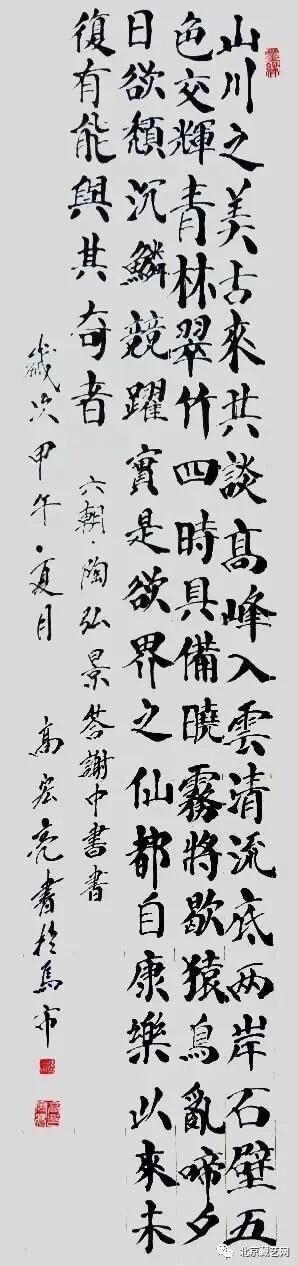 山川之美古來共談高峰入雲清流底两岸石壁五
色交輝青林翠竹四時具備曉霧將歇猿鳥亂啼夕
日欲頹沉鱗競躍實是欲界之仙都自康樂以來未
復有能與其奇者
六朝·陶弘景答謝中書書
歲次甲午·夏月 高宏亮書於馬市
北京藏艺网